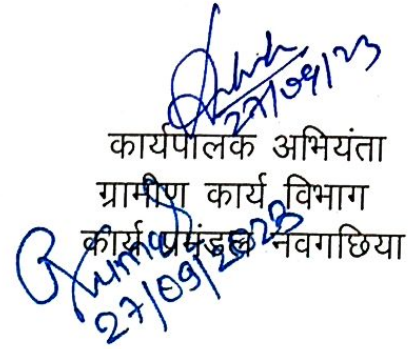 27/09/23
कार्यपालक अभियंता
ग्रामीण कार्य विभाग
कार्य प्रमंडल नवगछिया
27/09/2023